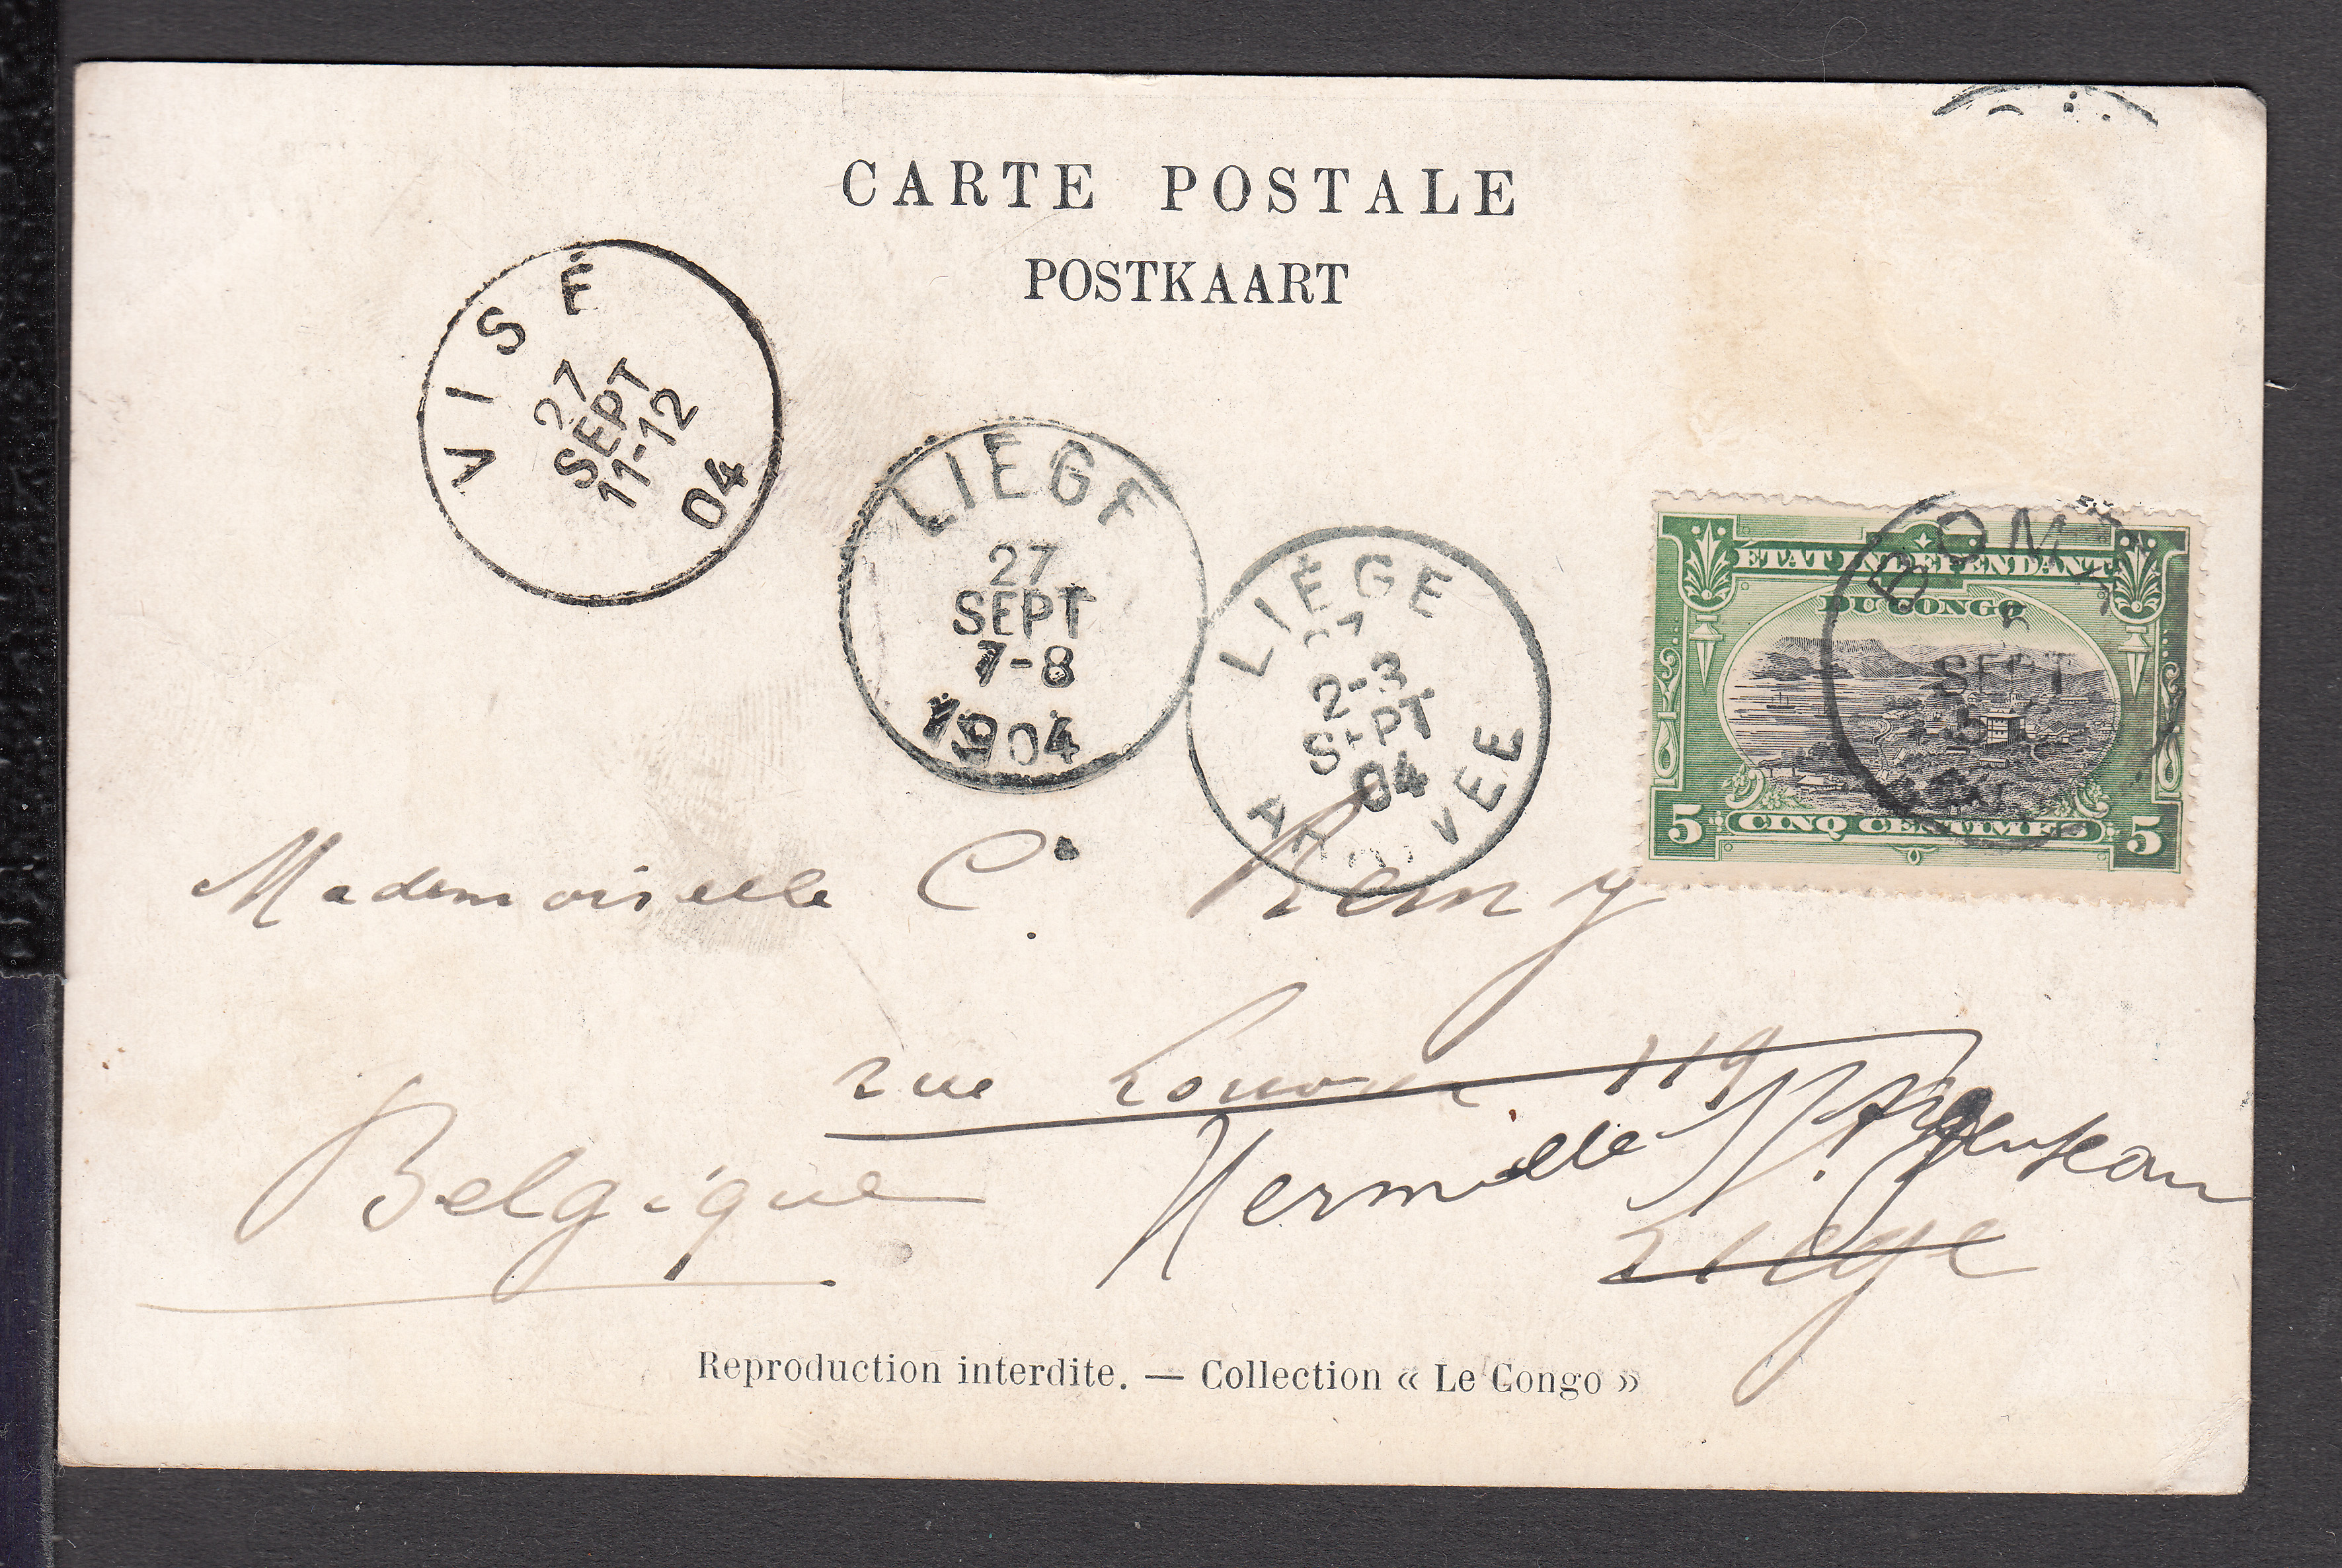 CARTE POSTALE
POSTKAART
VISÉ
27
SEPT
11-12
04
LIEGE
27
SEPT
7-8
1904
LIÈGE
27
2-3
SEPT
04
ARRIVEE
BOMA
SEPT
ETAT INDÉPENDANT
DU CONGO
5 CINQ CENTIMES 5
Mademoiselle C. Remy
rue 119
Hermalle s/ Argenteau
Belgique
Liège
Reproduction interdite. — Collection « Le Congo »